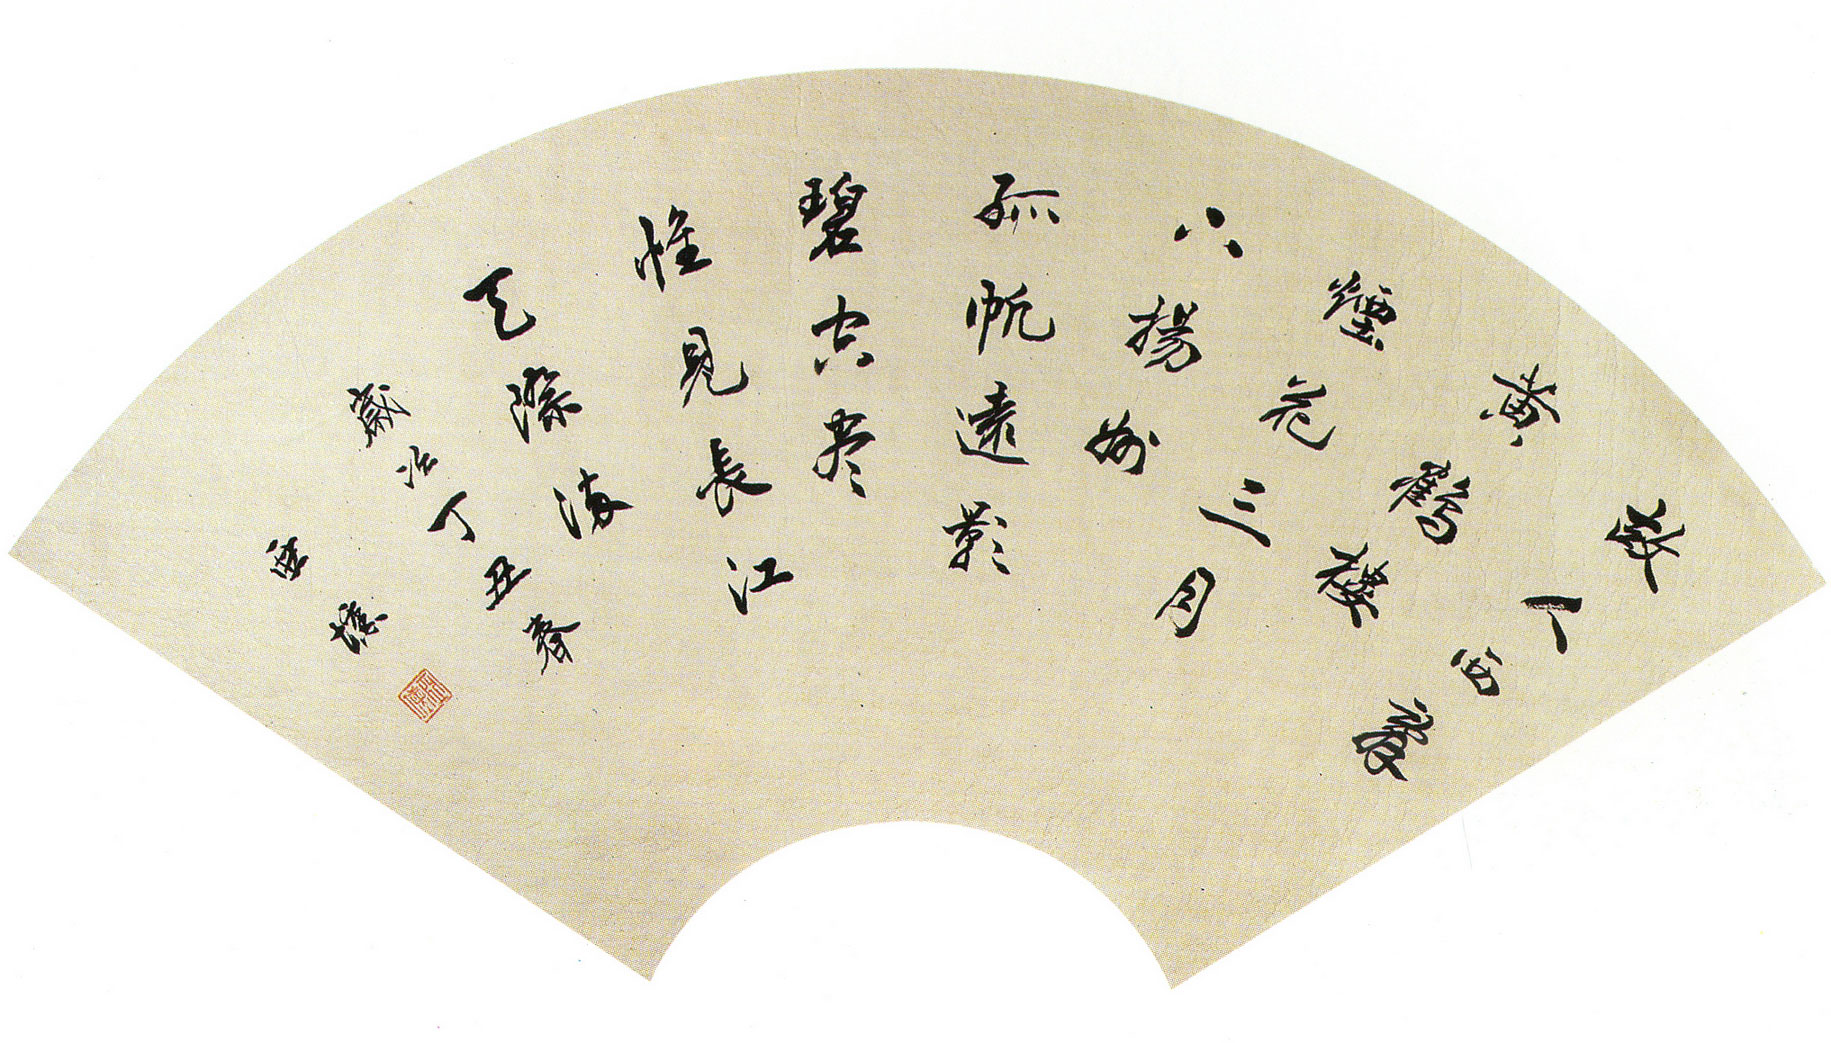 故人西辭
黃鶴樓
煙花三月
下揚州
孤帆遠影
碧空盡
惟見長江
天際流
歲次丁丑春